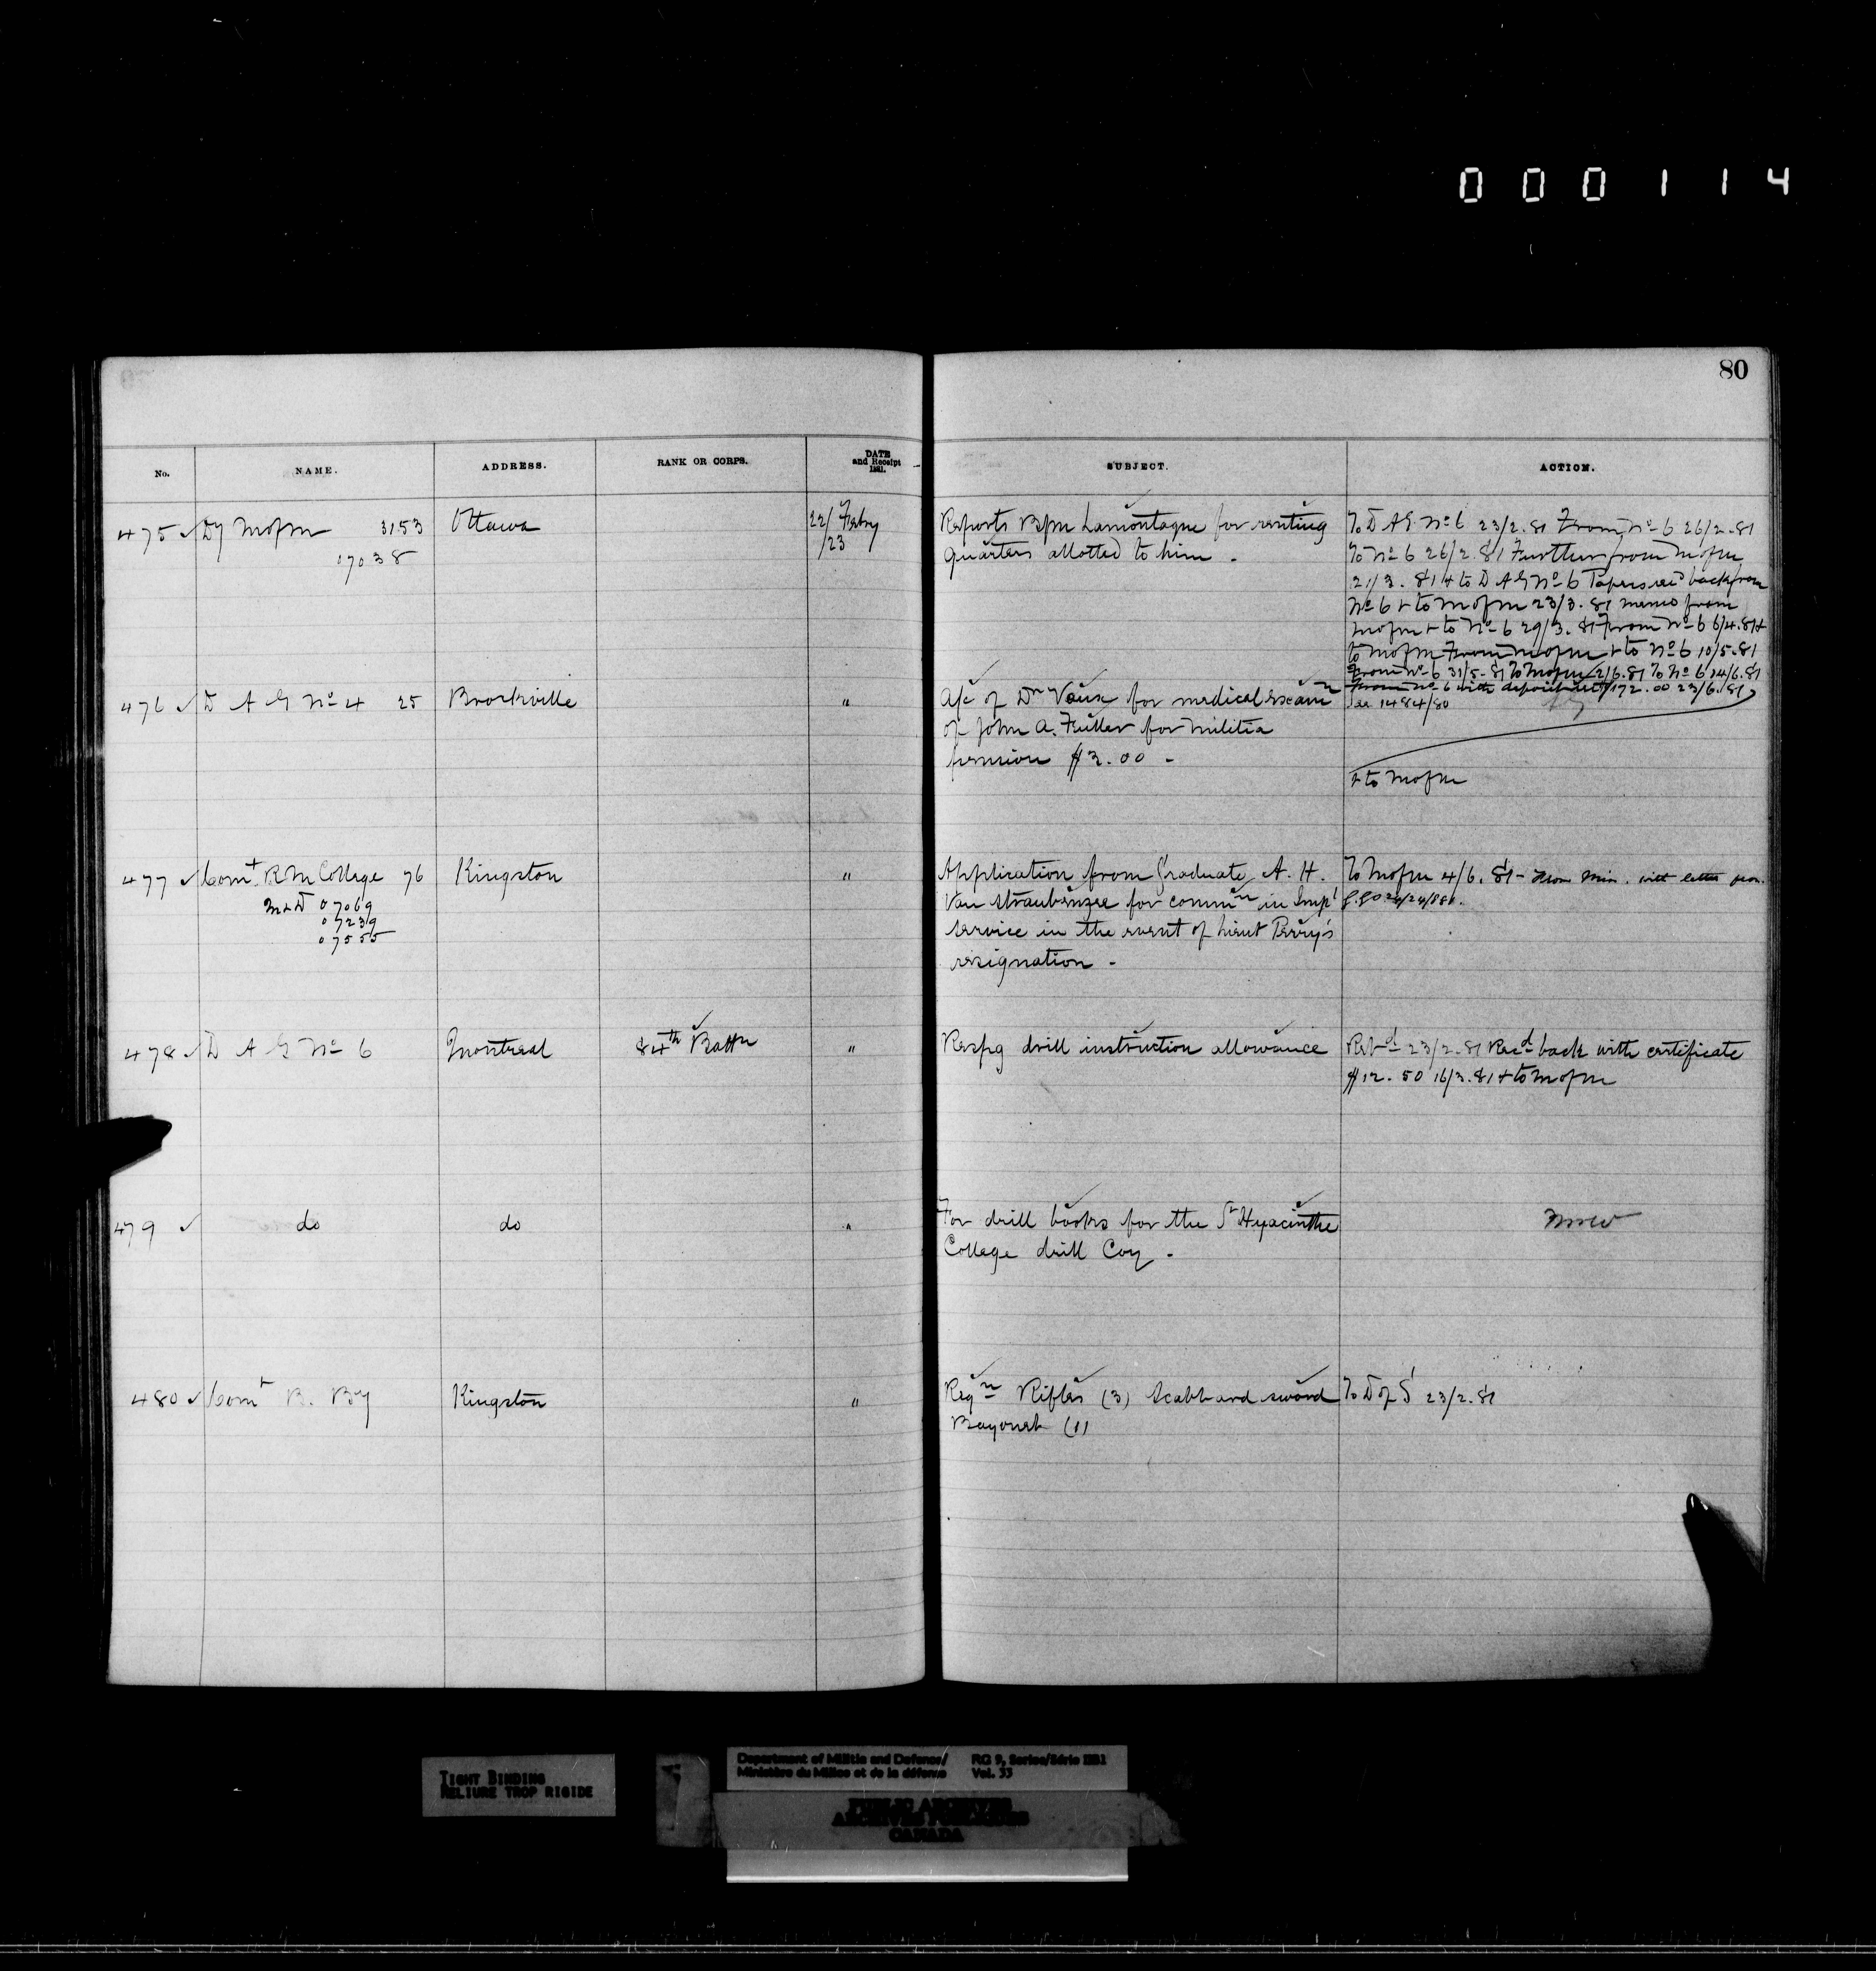 000114
80
No. NAME. ADDRESS. RANK OR CORPS. DATE and Receipt 1881. SUBJECT. ACTION.
475 Dy M of M 3153 Ottawa 22/ Febry
07038 /23
Reports BM Lamontagne for renting
quarters allotted to him -
To D A G No 6 23/2.81 From No 6 26/2.81
To No 6 26/2.81 Further from M of M
21/3.81 & to D A G No 6 Papers recd back from
No 6 & to M of M 23/3.81 memo from
M of M & to No 6 29/3.81 From No 6 6/4.81 &
to M of M From M of M & to No 6 10/5.81
From No 6 31/5.81 To M of M 2/6.81 To No 6 14/6.81
From No 6 with deposit $172.00 23/6.81
& to M of M
476 D A G No 4 25 Brockville "
A/c of Dr Vaux for medical exam
of John A. Fuller for militia
pension $2.00 -
See 1484/80
477 Comt. R M College 76 Kingston "
M & D 07069
07239
07555
Application from Graduate A. H.
Van Straubenzee for commn in Impl
service in the event of Lieut Perry's
resignation -
To M of M 4/6.81 - From Min. with letter from
478 D A G No 6 Montreal 84th Battn "
Respg drill instruction allowance
Retd 23/2.81 Recd back with certificate
$12.50 16/3.81 & to M of M
479 do do "
For drill books for the St Hyacinthe
College drill Coy -
480 Comt B. By Kingston "
Reqn Rifles (3) Scabbard sword
Bayonet (1)
To D of S 23/2.81
TIGHT BINDING
RELIURE TROP RIGIDE
Department of Militia and Defence/ RG 9, Series/Série IIB1
Ministère du Milice et de la défense Vol. 33
PUBLIC ARCHIVES
ARCHIVES PUBLIQUES
CANADA